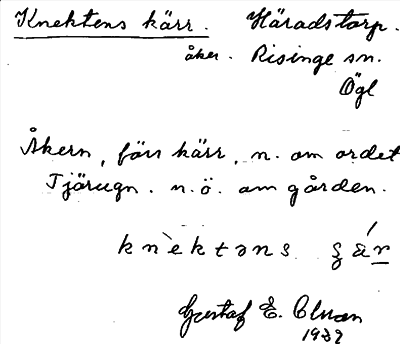 Knektens kärr. Häradstorp.
åker. Risinge sn.
Ögl
Åkern, förr kärr, n. om ordet
Tjärugn. n.ö. om gården.
Gustaf E.
1932